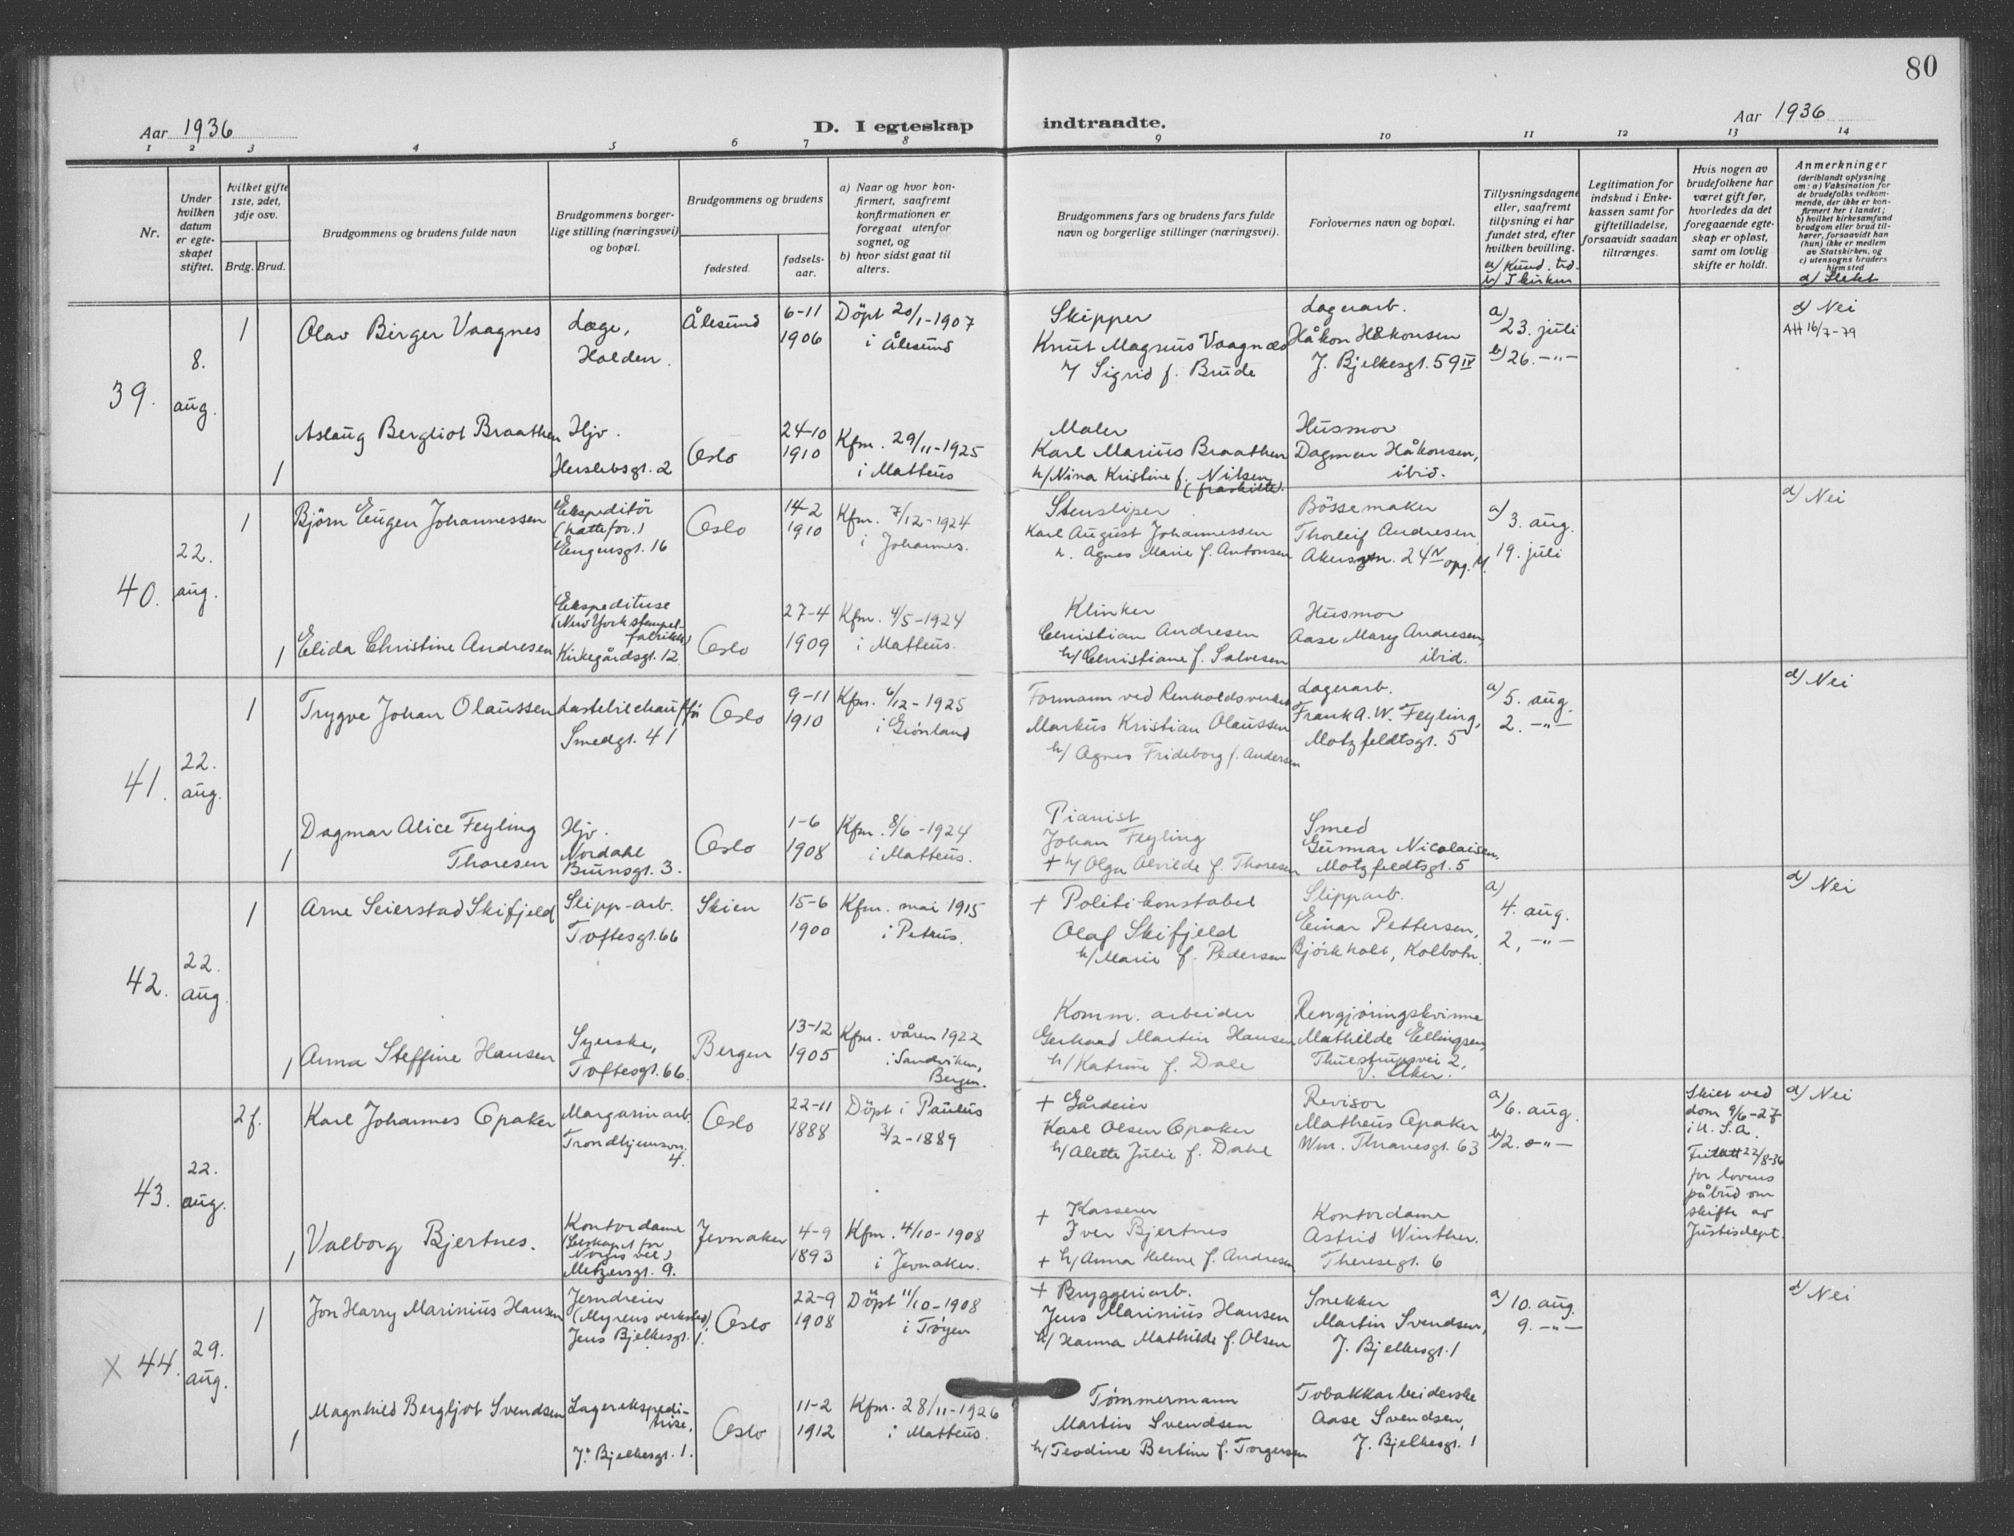 80
Aar 1936
D. I egteskap indtraadte.
Aar 1936
1 2 3 4 5 6 7 8 9 10 11 12 13 14
Nr.
Under hvilken datum er egteskapet stiftet.
Hvilket gifte 1ste, 2det, 3dje osv.
Brdg. Brud.
Brudgommens og brudens fulde navn
Brudgommens borgerlige stilling (næringsvei) og bopæl.
Brudgommens og brudens
fødested.
fødselsaar.
a) Naar og hvor konfirmert, saafremt konfirmationen er foregaat utenfor sognet, og
b) hvor sidst gaat til alters.
Brudgommens fars og brudens fars fulde navn og borgerlige stillinger (næringsvei).
Forlovernes navn og bopæl.
Tillysningsdagene eller, saafremt tillysning ei har fundet sted, efter hvilken bevilling.
a/ Kund. tid
b/ I kirken
Legitimation for indskud i Enkekassen samt for giftetilladelse, forsaavidt saadan tiltrænges.
Hvis nogen av brudefolkene har været gift før, hvorledes da det foregaaende egteskap er opløst, samt om lovlig skifte er holdt.
Anmerkninger
(deriblandt oplysning om: a) Vaksination for de brudefolks vedkommende, der ikke er konfirmert her i landet; b) hvilket kirkesamfund brudgom eller brud tilhører, forsaavidt han (hun) ikke er medlem av Statskirken, og c) utensogns bruders hjemsted
d) Slekt
39.
8. aug.
1
Olav Birger Vaagnes
Læge,
Halden.
Ålesund
6-11
1906
Döpt 20/1-1907
i Ålesund
Skipper
Knut Magnus Vaagnæs
h/ Sigrid f. Brude
Lagerarb.
Håkon Håkonsen
J. Bjelkesgt. 59 IV
a) 23. juli
b) 26. -"-
d) Nei
AH 16/7-79
1
Aslaug Bergliot Braathen
Hjv.
Herslebsgt. 2
Oslo
24-10
1910
Kfm. 29/11-1925
i Matteus
Maler
Karl Marius Braathen
h/ Nina Kristine f. Nilsen
(fraskilte).
Husmor
Dagmar Håkonsen,
ibid.
40.
22. aug.
1
Bjørn Eugen Johannessen
Ekspeditör
(hattefor.)
Eugensgt. 16
Oslo
14-2
1910
Kfm. 7/12-1924
i Johannes.
Stensliper
Karl August Johannessen
h. Agnes Marie f. Antonsen
Bössemaker
Thorleif Andresen
a) 3. aug.
19. juli
d) Nei
1
Elida Christine Andresen
Ekspeditrise
(New York stempelfabrikk)
Kirkegårdsgt. 12
Oslo
27-4
1909
Kfm. 4/5-1924
i Matteus.
Klinker
Christian Andresen
h/ Christiane f. Salvesen
Husmor
Aase Mary Andresen,
ibid.
41.
22. aug.
1
Trygve Johan Olaussen
Lastebilchauffør
Smedgt. 41
Oslo
9-11
1910
Kfm. 6/12-1925
i Grønland
Formann ved Renholdsverket
Markus Kristian Olaussen
h/ Agnes Frideborg f. Andersen
Lagerarb.
Frank A. W. Feyling,
Motzfeldtsgt. 5
a) 5. aug.
2. -"-
d) Nei
1
Dagmar Alice Feyling
Thoresen
Hjv.
Nordahl
Brunsgt. 3.
Oslo
1-6
1908
Kfm. 8/6-1924
i Matteus.
Pianist
Johan Feyling
+ h/ Olga Alvilde f. Thoresen
Smed
Gunnar Nicolaisen,
Motzfeldtsgt. 5
42.
22. aug.
1
Arne Seierstad Skifjeld
Slipp-arb.
Toftesgt. 66
Skien
15-6
1900
Kfm. mai 1915
i Petrus.
+ Politikonstabel
Olaf Skifjeld
h/ Marie f. Pedersen
Slipparb.
Einar Pettersen,
Bjørkholt, Kolbotn.
a) 4. aug.
2. -"-
d) Nei
1
Anna Steffine Hansen
Syerske,
Toftesgt. 66.
Bergen
13-12
1905
Kfm. våren 1922
i Sandviken,
Bergen.
Komm. arbeider
Gerhard Martin Hansen
h/ Katrine f. Dale
Rengjøringskvinne
Mathilde Ellingsen,
Thuestrupsvei 2,
V. Aker.
43.
22. aug.
2 f.
Karl Johannes Opaker
Margarinarb.
Trondhjemsvn.
4.
Oslo
22-11
1888
Döpt i Paulus
3/2-1889
+ Gårdeier
Karl Olsen Opaker
h/ Alette Julie f. Dahl
Revisor
Matheus Opaker
Wm. Thranesgt. 63
a) 6. aug.
b) 2. -"-
Skilt ved
dom 9/6-27
i U.S.A.
Fritatt 22/8-36
for lovens
påbud om
skifte av
Justisdept.
d) Nei
1
Valborg Bjertnes.
Kontordame
(Selskapet for
Norges vel)
Meltzersgt. 9.
Jevnaker
4-9
1893
Kfm. 4/10-1908
i Jevnaker.
+ Kasserer
Iver Bjertnes
+ h/ Anna Helene f. Andresen
Kontordame
Astrid Winther.
Theresegt. 6
x 44.
29. aug.
1
Jon Harry Marinius Hansen
Jerndreier
(Myrens verksted)
Jens Bjelkesgt. 1.
Oslo
22-9
1908
Döpt 11/10-1908
i Tøyen
+ Bryggeriarb.
Jens Marinius Hansen
h/ Hanna Mathilde f. Olsen
Snekker
Martin Svendsen,
J. Bjelkesgt. 1
a) 10. aug.
9. -"-
d) Nei
1
Magnhild Bergljot Svendsen
Lagerekspeditrise,
J. Bjelkesgt. 1.
Oslo
11-2
1912
Kfm. 28/11-1926
i Matteus.
Tømmermann
Martin Svendsen
h/ Teodine Bertine f. Torgersen
Tobakkarbeiderske
Aase Svendsen,
J. Bjelkesgt. 1